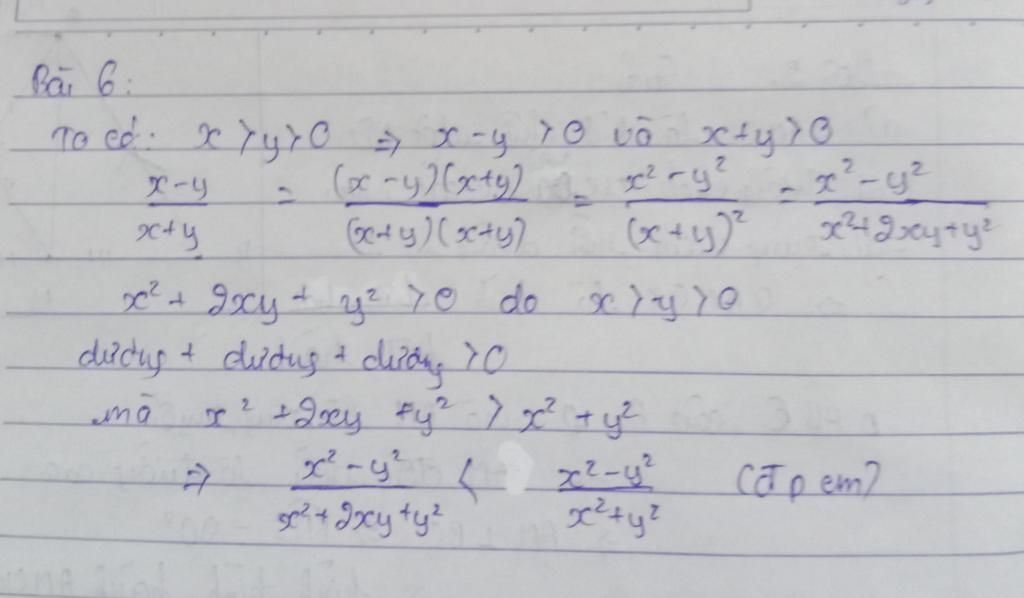 Bài 6:
Ta có: x > y > 0 => x - y > 0 và x + y > 0
(x-y)/(x+y) = ((x-y)(x+y))/((x+y)(x+y)) = (x² - y²)/(x+y)² = (x² - y²)/(x² + 2xy + y²)
x² + 2xy + y² > 0 do x > y > 0
dương + dương + dương > 0
mà x² + 2xy + y² > x² + y²
=> (x² - y²)/(x² + 2xy + y²) < (x² - y²)/(x² + y²) (đpcm)